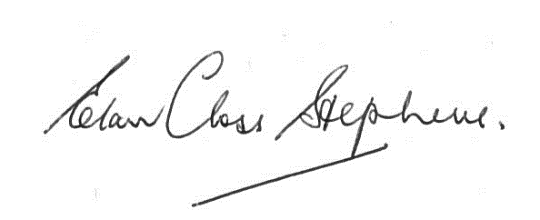 Elan Closs Stephens.